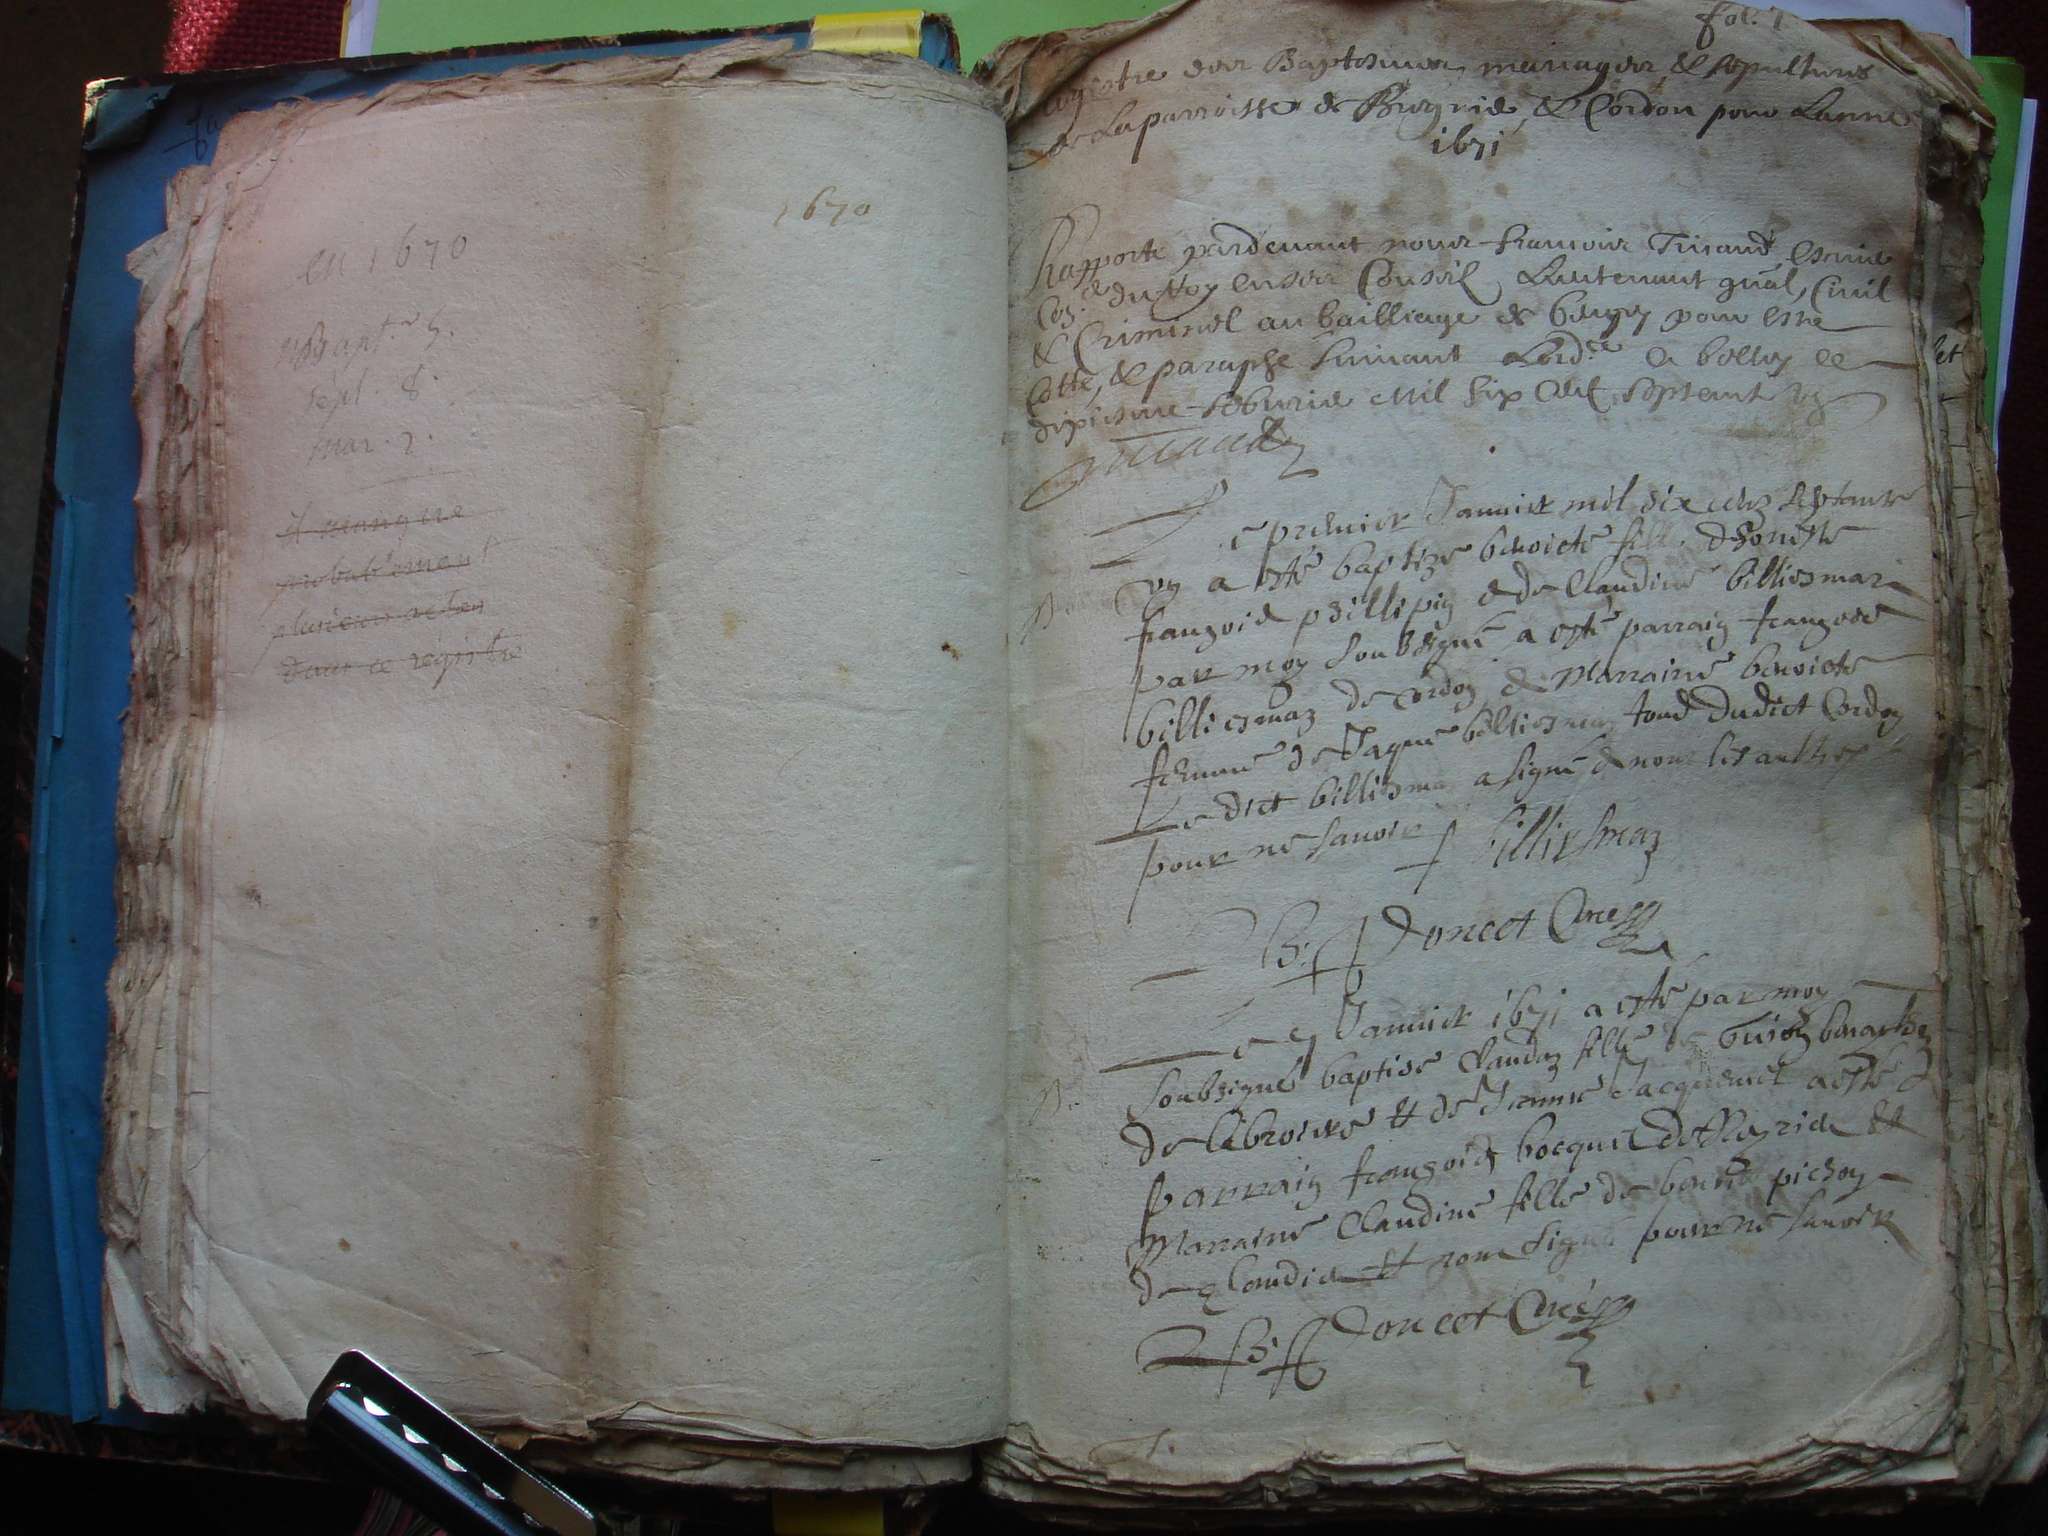 en 1670
Bapt. 5.
sépt. 8.
mar. 2.
il manque
probablement
plusieurs actes
dans ce registre
1670
fol. 1
registre des Baptesmes, mariages, & sepultures
de La parroisse de & Cordon pour Lanne
1671
Rapporte pardevant nous francois
du Roy en ses Conseil Lieutenant gnal, Civil
& Criminel au bailliage de bugey pour estre
Cotté, & paraphe suivant Lord.ce a belley ce
dixiesme feburier Mil Six Cent septent
Le premier Januier mil six cens septante
vn a esté baptizé benoicte fille dhoneste
françois phillipin & de Claudine billiesmaz
par moy soubsigné a esté parrain françois
billiesmaz de cordon & Marraine benoicte
femme de Jaque billiesmaz tous dudict Cordon
Ledict billiesmaz a signé & non les aultres
pour ne savoir f billiesmaz
Doncet Curé
B.
Le Januier 1671 a esté par moy
soubsigné baptisé Claudaz fille de
de & de Jeanne Jacquemet a esté
parrain françois bocquet de & 
Marraine Claudine fille de benoit pichon
de & non signé pour ne savoir
Doncet Curé
B.